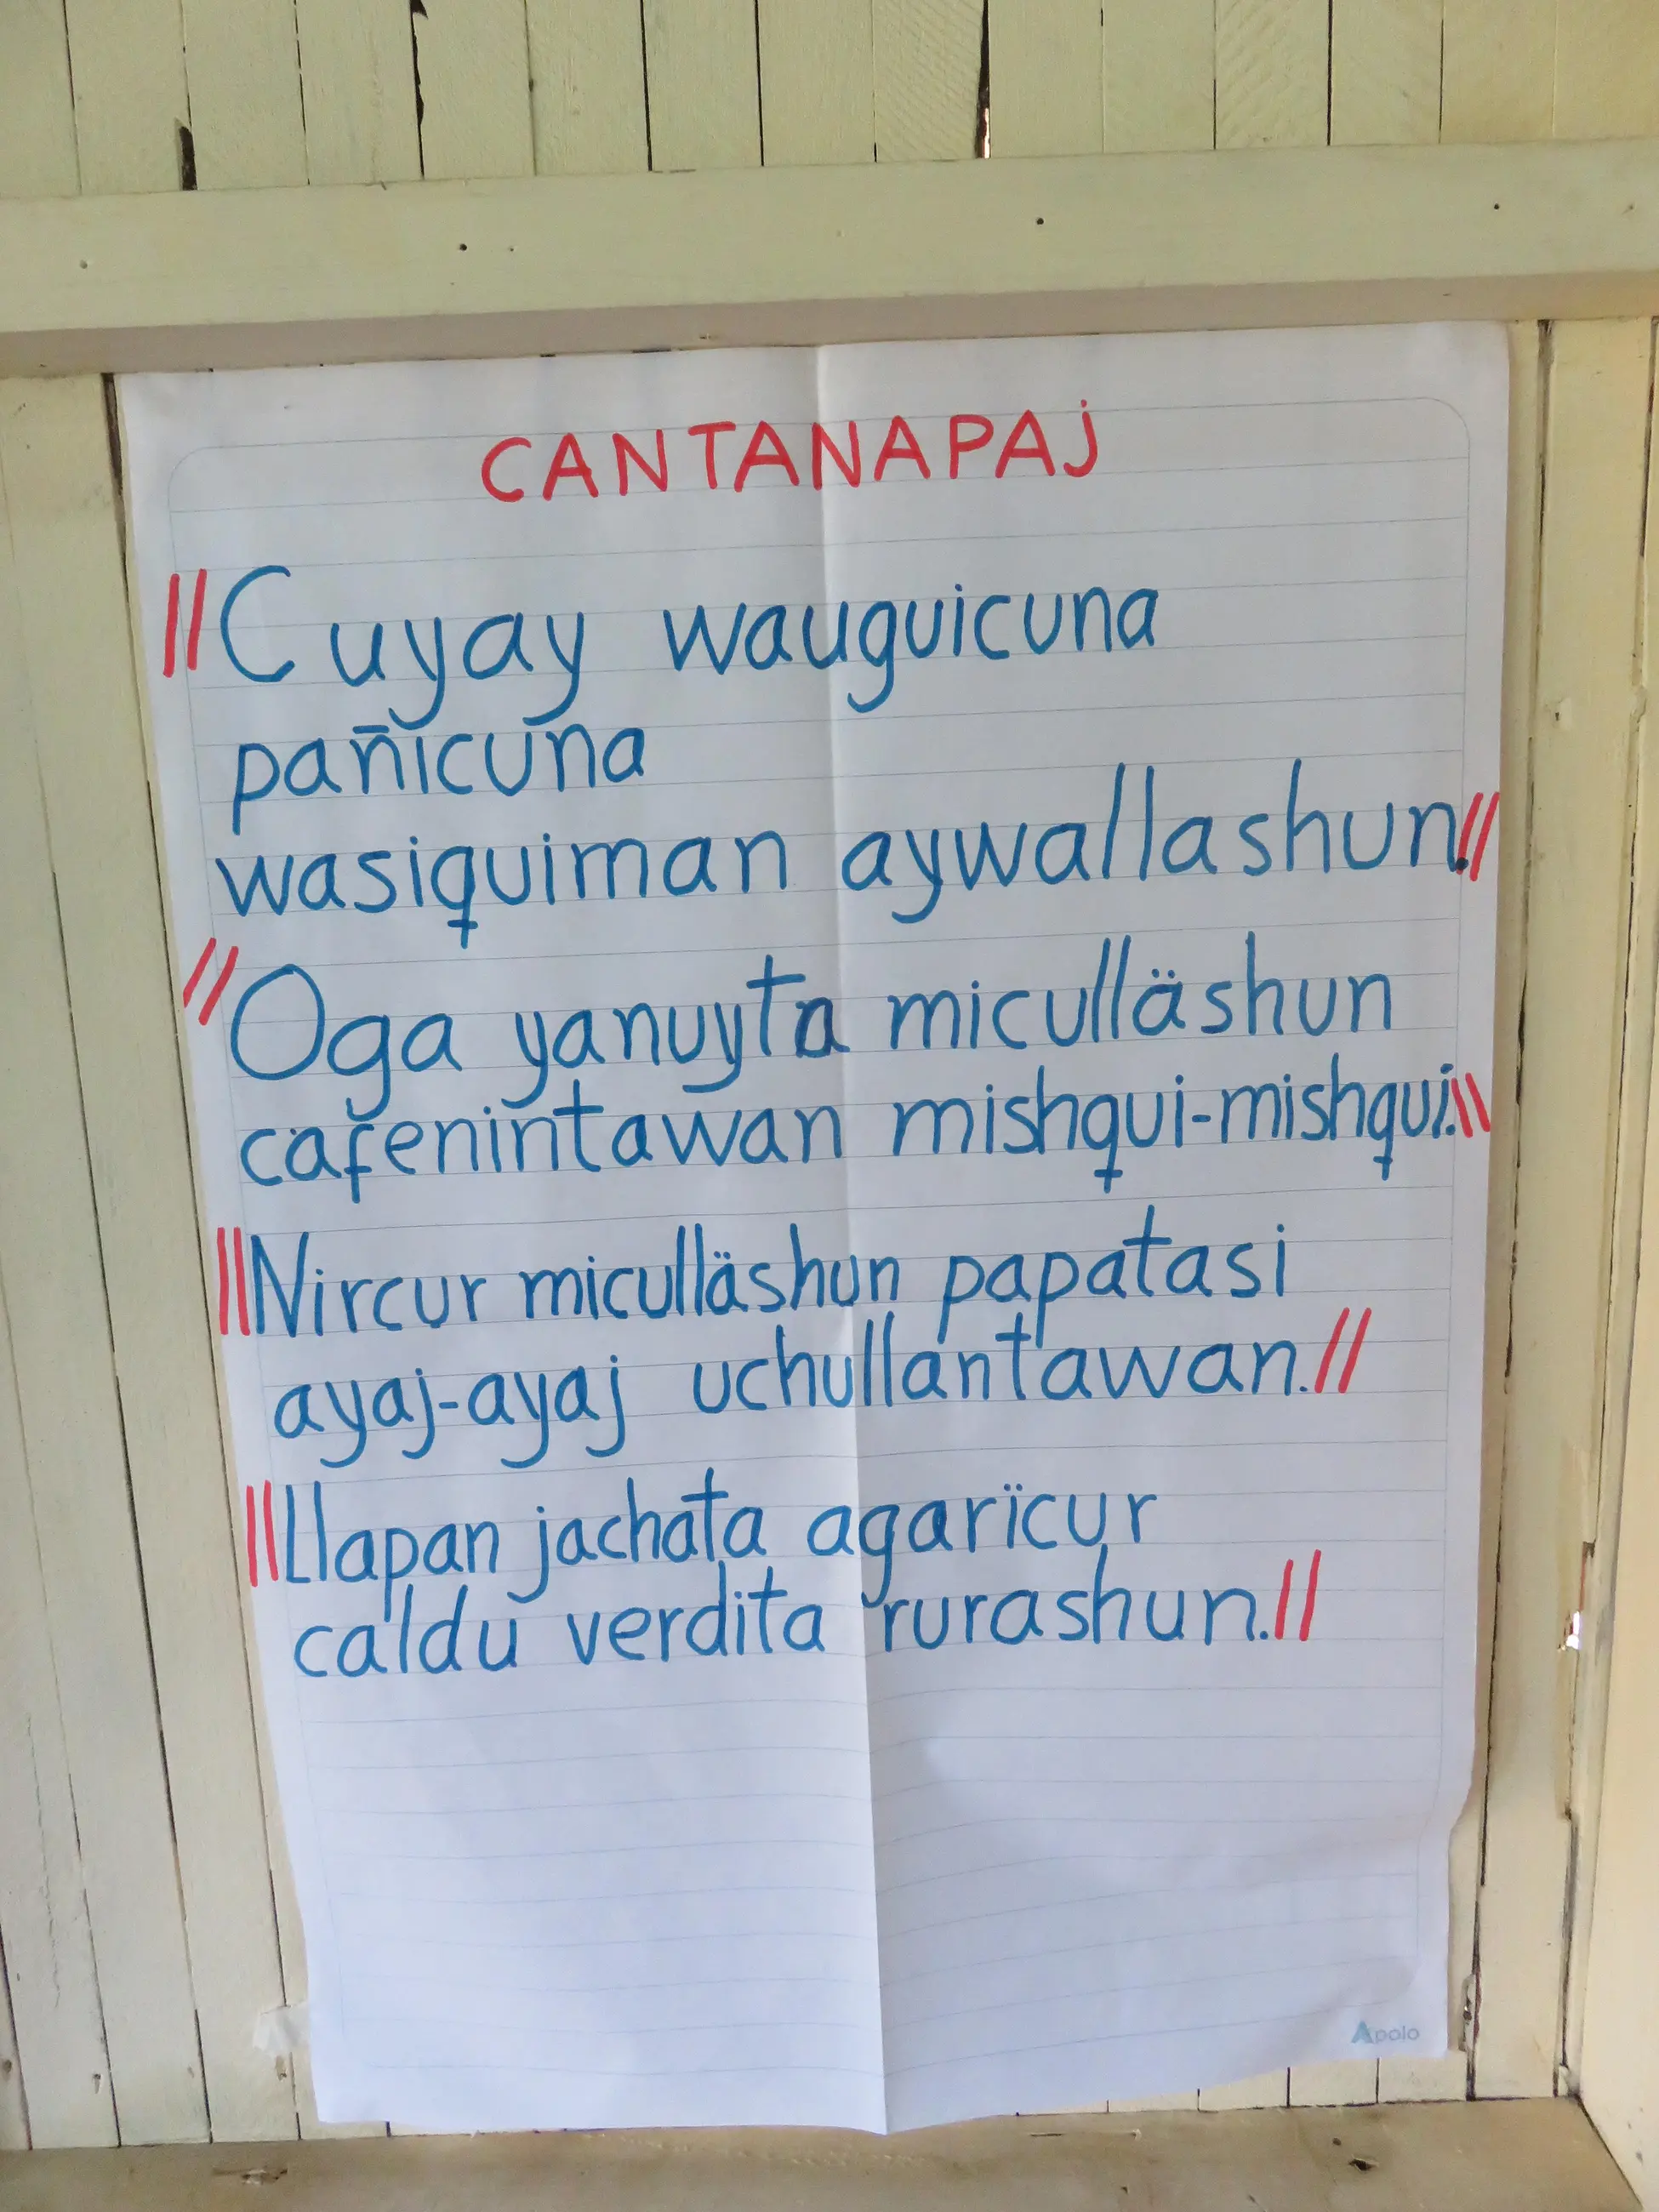 CANTANAPAj
||Cuyay wauguicuna
pañicuna
wasiquiman aywallashun.||
||Oga yanuyta miculläshun
cafenintawan mishqui-mishqui.||
||Nircur miculläshun papatasi
ayaj-ayaj uchullantawan.||
||Llapan jachata agarïcur
caldu verdita rurashun.||
Apolo